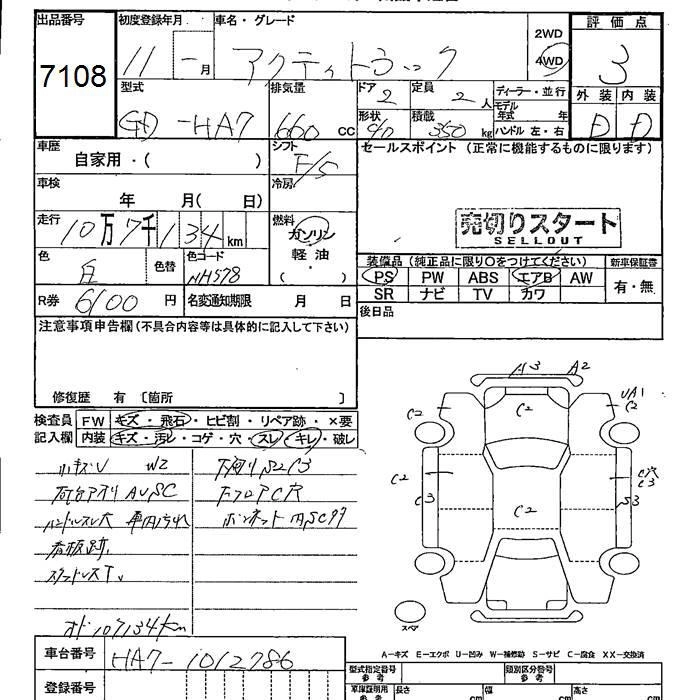 出品番号
7108
初度登録年月
11 - 月
車名・グレード
アクティトラック
2WD
4WD
評価点
3
外装 内装
D D
型式
GD-HA7
排気量
660 CC
ドア
2
定員
2 人
形状
積載
350 kg
ディーラー・並行
モデル年式 年
ハンドル 左・右
車歴
自家用・( )
シフト
F/5
セールスポイント(正常に機能するものに限ります)
車検
年 月( 日)
冷房
走行
10万7千134km
燃料
ガソリン
軽油
( )
売切りスタート
SELLOUT
色
白
色替
色コード
NH578
装備品(純正品に限り○をつけてください)
PS PW ABS エアB AW
SR ナビ TV カワ
新車保証書
有・無
R券 6100 円
名変通知期限 月 日
後日品
注意事項申告欄(不具合内容等は具体的に記入して下さい)
修復歴 有 〔箇所 〕
検査員記入欄
FW キズ・飛石・ヒビ割・リペア跡・×要
内装 キズ・汚レ・コゲ・穴・スレ・キレ・破レ
小キズU W2
下廻りS2C3
荷台アオリAUSC
下フロアC穴
ハンドルスレ大 車内汚れ
ボンネット内SCサ
看板跡
オド107134km
A3 A2
C2 C2 UA1 C2
C2 C穴 C3
C3 S3
C2
スペア
A-キズ E-エクボ U-凹み W-補修跡 S-サビ C-腐食 XX-交換済
車台番号
HA7-1012786
登録番号
型式指定番号 参考
類別区分番号 参考
車庫証明用 参考
長さ cm
幅 cm
高さ cm